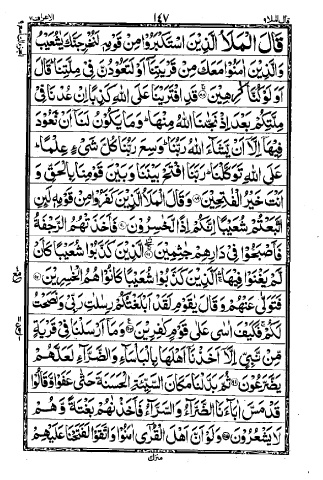 قال الملا٩
١٤٧
الاعراف٧
قَالَ الْمَلَاُ الَّذِيْنَ اسْتَكْبَرُوْا مِنْ قَوْمِهٖ لَنُخْرِجَنَّكَ يٰشُعَيْبُ
وَالَّذِيْنَ اٰمَنُوْا مَعَكَ مِنْ قَرْيَتِنَآ اَوْ لَتَعُوْدُنَّ فِيْ مِلَّتِنَا قَالَ
اَوَلَوْ كُنَّا كٰرِهِيْنَ ۝ قَدِ افْتَرَيْنَا عَلَى اللّٰهِ كَذِبًا اِنْ عُدْنَا فِيْ
مِلَّتِكُمْ بَعْدَ اِذْ نَجّٰنَا اللّٰهُ مِنْهَا وَمَا يَكُوْنُ لَنَآ اَنْ نَّعُوْدَ
فِيْهَآ اِلَّآ اَنْ يَّشَآءَ اللّٰهُ رَبُّنَا وَسِعَ رَبُّنَا كُلَّ شَيْءٍ عِلْمًا
عَلَى اللّٰهِ تَوَكَّلْنَا رَبَّنَا افْتَحْ بَيْنَنَا وَبَيْنَ قَوْمِنَا بِالْحَقِّ وَ
اَنْتَ خَيْرُ الْفٰتِحِيْنَ ۝ وَقَالَ الْمَلَاُ الَّذِيْنَ كَفَرُوْا مِنْ قَوْمِهٖ لَئِنِ
اتَّبَعْتُمْ شُعَيْبًا اِنَّكُمْ اِذًا لَّخٰسِرُوْنَ ۝ فَاَخَذَتْهُمُ الرَّجْفَةُ
فَاَصْبَحُوْا فِيْ دَارِهِمْ جٰثِمِيْنَ ۝ الَّذِيْنَ كَذَّبُوْا شُعَيْبًا كَاَنْ
لَّمْ يَغْنَوْا فِيْهَا اَلَّذِيْنَ كَذَّبُوْا شُعَيْبًا كَانُوْا هُمُ الْخٰسِرِيْنَ ۝
فَتَوَلّٰى عَنْهُمْ وَقَالَ يٰقَوْمِ لَقَدْ اَبْلَغْتُكُمْ رِسٰلٰتِ رَبِّيْ وَنَصَحْتُ
لَكُمْ فَكَيْفَ اٰسٰى عَلٰى قَوْمٍ كٰفِرِيْنَ ۝ وَمَآ اَرْسَلْنَا فِيْ قَرْيَةٍ
مِّنْ نَّبِيٍّ اِلَّآ اَخَذْنَآ اَهْلَهَا بِالْبَاْسَآءِ وَالضَّرَّآءِ لَعَلَّهُمْ
يَضَّرَّعُوْنَ ۝ ثُمَّ بَدَّلْنَا مَكَانَ السَّيِّئَةِ الْحَسَنَةَ حَتّٰى عَفَوْا وَّقَالُوْا
قَدْ مَسَّ اٰبَآءَنَا الضَّرَّآءُ وَالسَّرَّآءُ فَاَخَذْنٰهُمْ بَغْتَةً وَّهُمْ
لَا يَشْعُرُوْنَ ۝ وَلَوْ اَنَّ اَهْلَ الْقُرٰٓى اٰمَنُوْا وَاتَّقَوْا لَفَتَحْنَا عَلَيْهِمْ
منزل٢